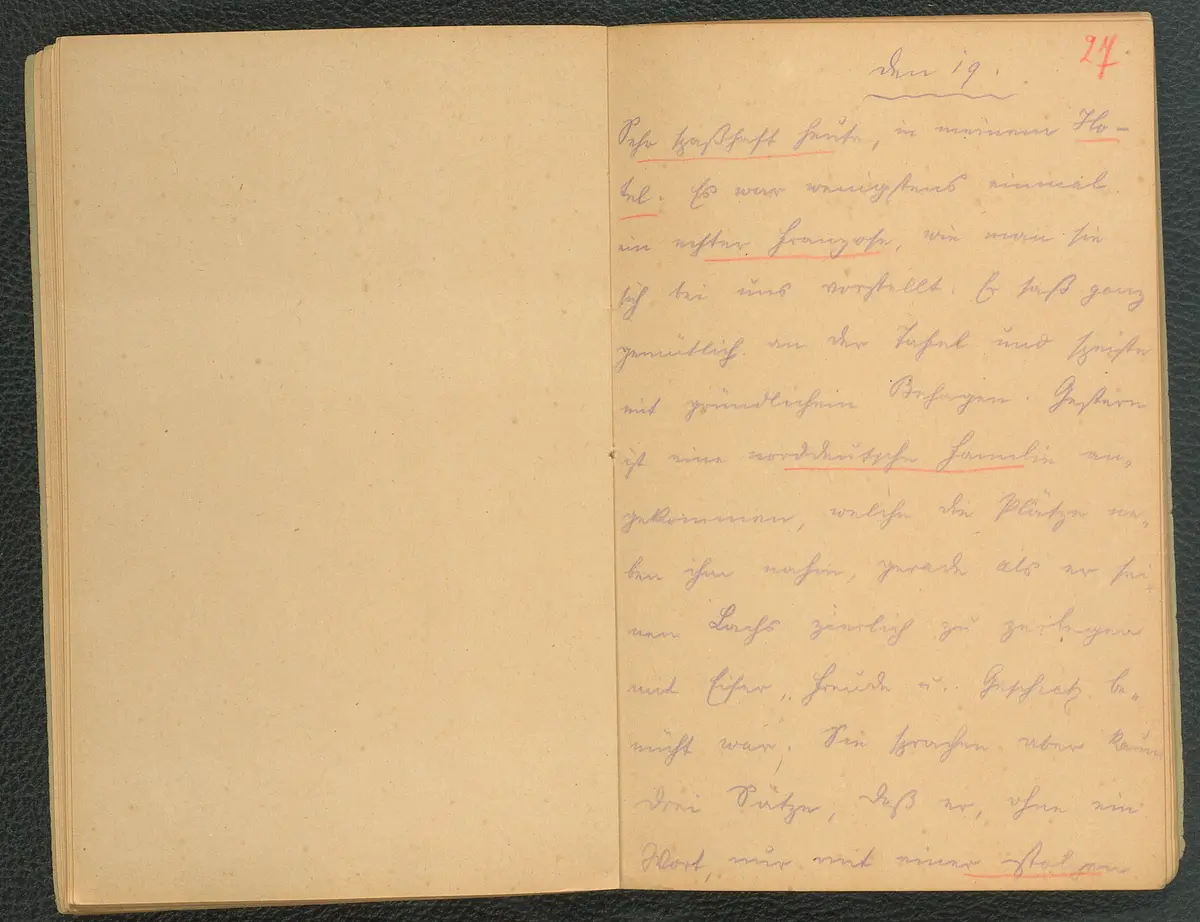 27
den 19.
Sehr spaßhaft heute, in meinem Ho-
tel. Es war wenigstens einmal
ein echter Franzose, wie man sie
sich bei uns vorstellt. Er saß ganz
gemütlich an der Tafel und speiste
mit gründlichem Behagen. Gestern
ist eine norddeutsche Familie an-
gekommen, welche die Plätze ne-
ben ihm nahm, gerade als er sei-
nen Lachs zierlich zu zerlegen
mit Eifer, Freude u. be-
müht war. Sie sprachen aber kaum
drei Sätze, daß er, ohne ein
Wort, nur mit einer stolzen